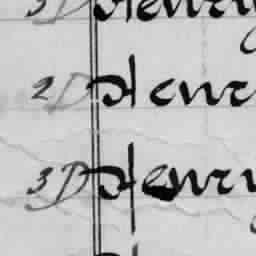 3D Henry
2D Henr
3D Henry